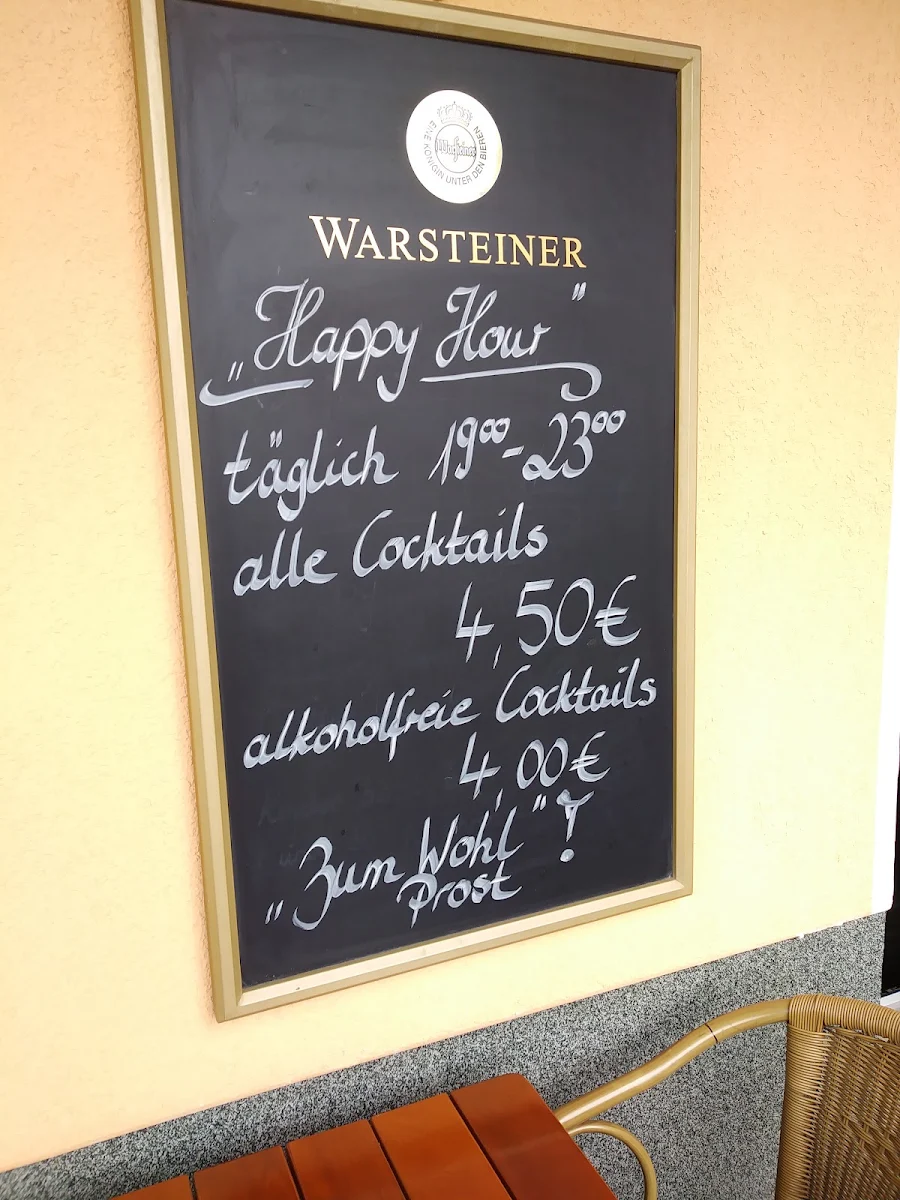 EINE KÖNIGIN UNTER DEN BIEREN
Warsteiner
WARSTEINER
„Happy Hour"
täglich 19⁰⁰-23⁰⁰
alle Cocktails
4,50€
alkoholfreie Cocktails
4,00€
„Zum Wohl"!
Prost